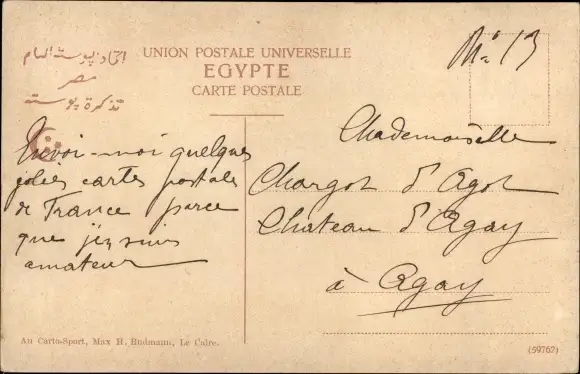 اتحاد پوسته العام
مصر
تذكرة پوسته
UNION POSTALE UNIVERSELLE
EGYPTE
CARTE POSTALE
No 13
Envoi-moi quelques
jolies cartes postales
de France parce
que j'en suis
amateur
Mademoiselle
Chargot d'Agot
Chateau d'Agay
à Agay
Au Carto-Sport, Max H. Rudmann, Le Caire.
(59762)